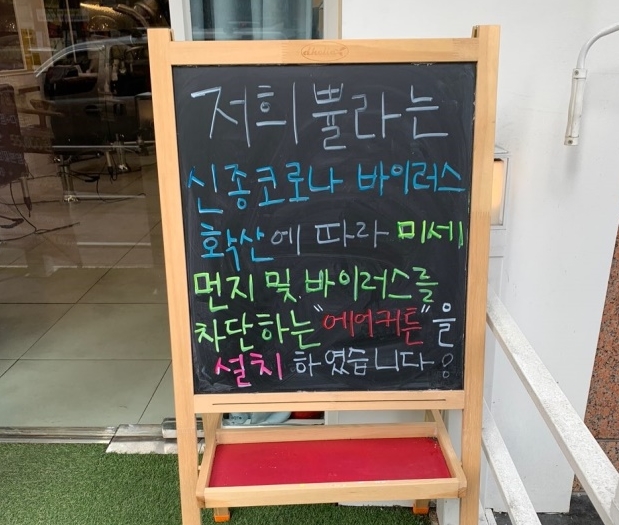 저희 뿔라는
신종코로나 바이러스
확산에 따라 미세
먼지 및 바이러스를
차단하는 "에어커튼"을
설치 하였습니다